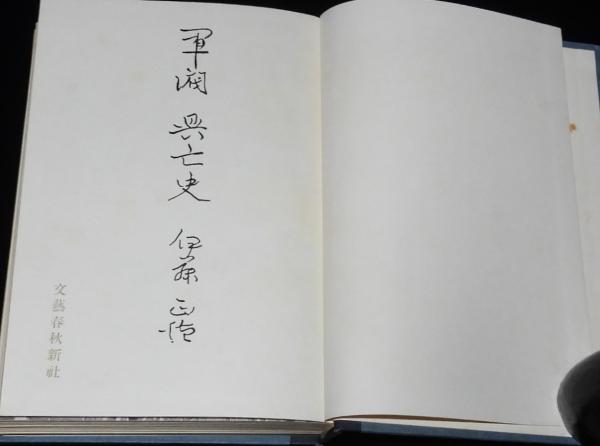 軍閥 興亡史 伊藤 正徳
文藝春秋新社